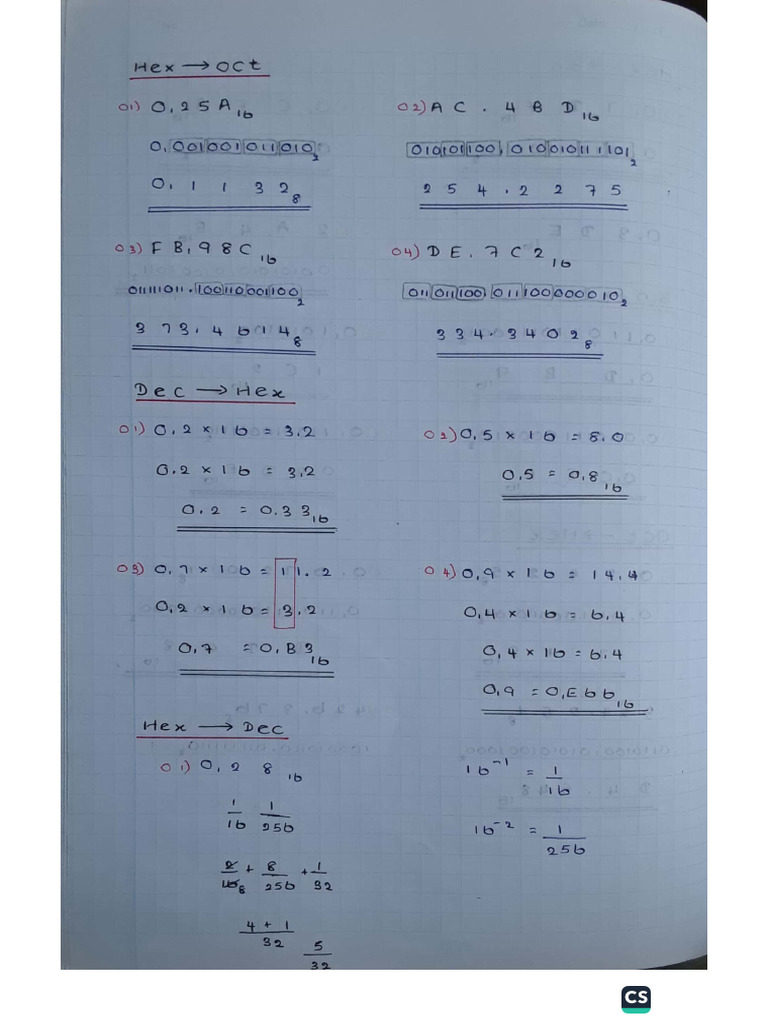 Hex → Oct
01) 0.25A16
0.0010010110102
0.11328
02) AC.4BD16
010101100.0100101111012
254.22758
03) FB.98C16
011111011.1001100011002
373.46148
04) DE.7C216
011011100.0111000000102
334.34028
Dec → Hex
01) 0.2 × 16 = 3.2
0.2 × 16 = 3.2
0.2 = 0.3316
02) 0.5 × 16 = 8.0
0.5 = 0.816
03) 0.7 × 16 = 11.2
0.2 × 16 = 3.2
0.7 = 0.B316
04) 0.9 × 16 = 14.4
0.4 × 16 = 6.4
0.4 × 16 = 6.4
0.9 = 0.E6616
Hex → Dec
01) 0.2816
1/16 1/256
2/16 8 + 8/256 + 1/32
4 + 1/32
5/32
16-1 = 1/16
16-2 = 1/256
CS